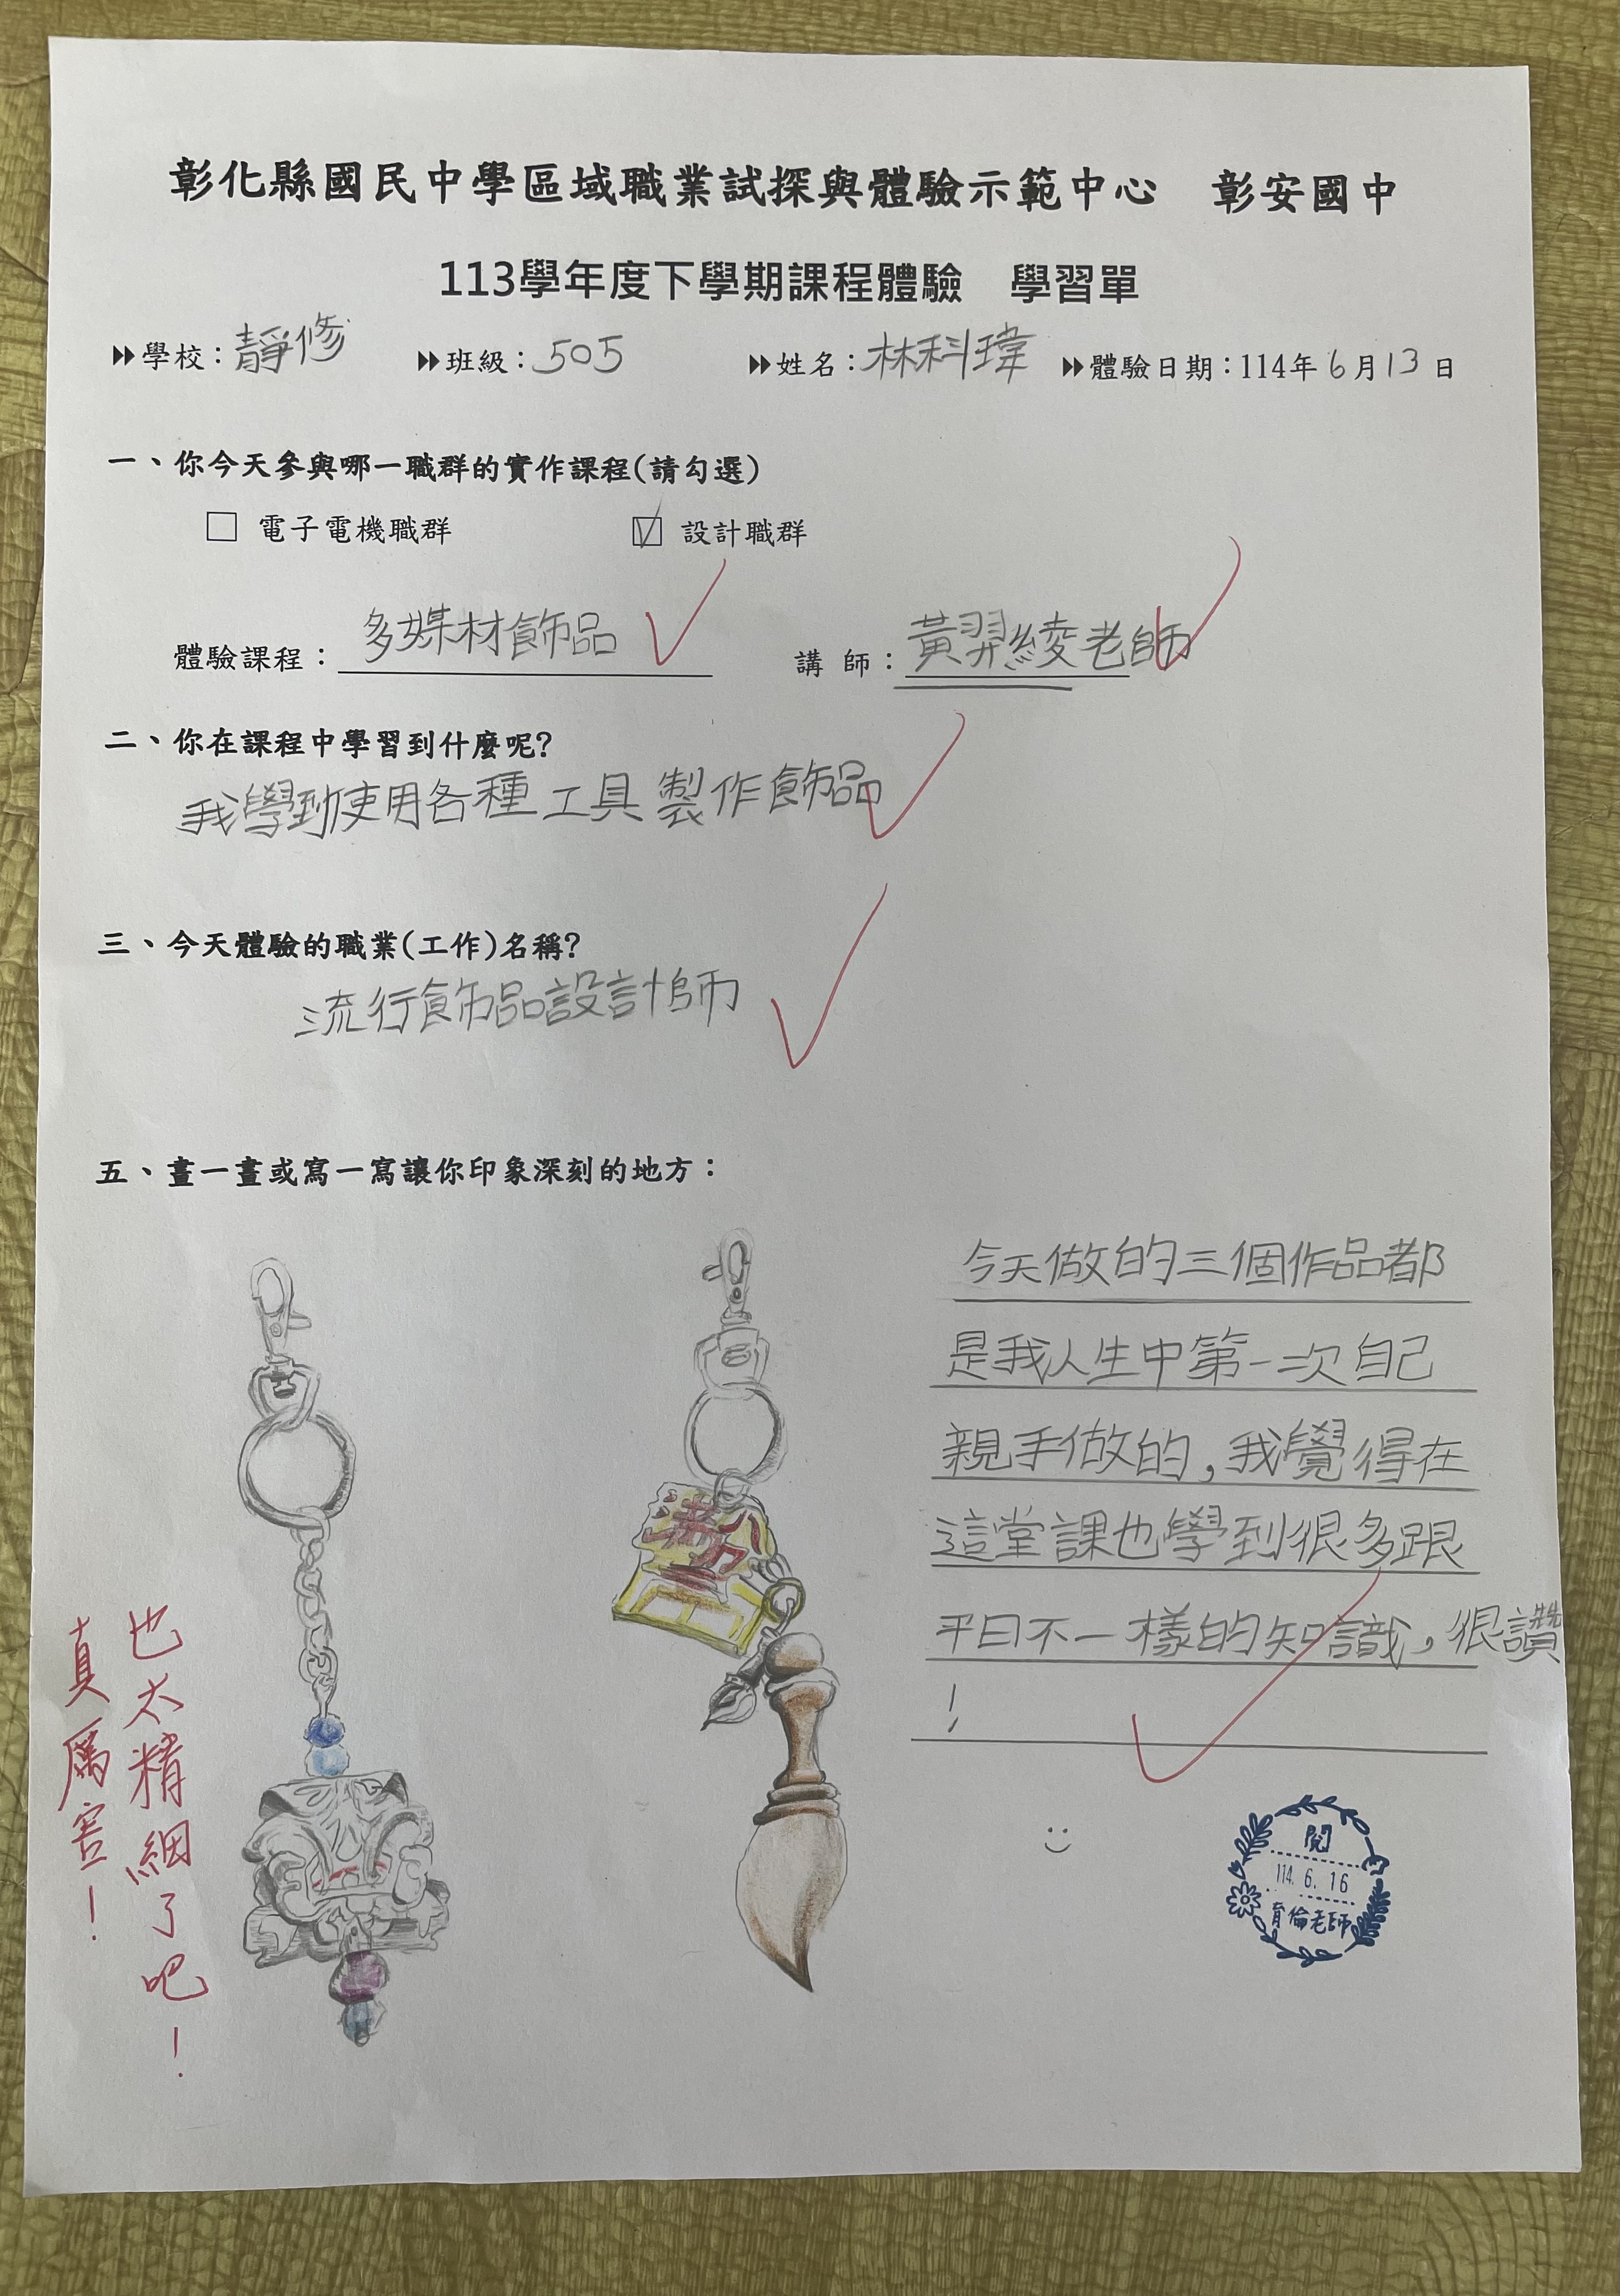 彰化縣國民中學區域職業試探與體驗示範中心 彰安國中
113學年度下學期課程體驗 學習單
學校：靜修 班級：505 姓名：林科瑋 體驗日期：114年6月13日
一、你今天參與哪一職群的實作課程(請勾選)
電子電機職群 設計職群
體驗課程：多媒材飾品 講 師：黃羿綾老師
二、你在課程中學習到什麼呢?
我學到使用各種工具製作飾品
三、今天體驗的職業(工作)名稱?
流行飾品設計師
五、畫一畫或寫一寫讓你印象深刻的地方：
今天做的三個作品都
是我人生中第一次自己
親手做的，我覺得在
這堂課也學到很多跟
平日不一樣的知識，很讚
！
也太精細了吧！
真厲害！
閱
114. 6. 16
育倫老師